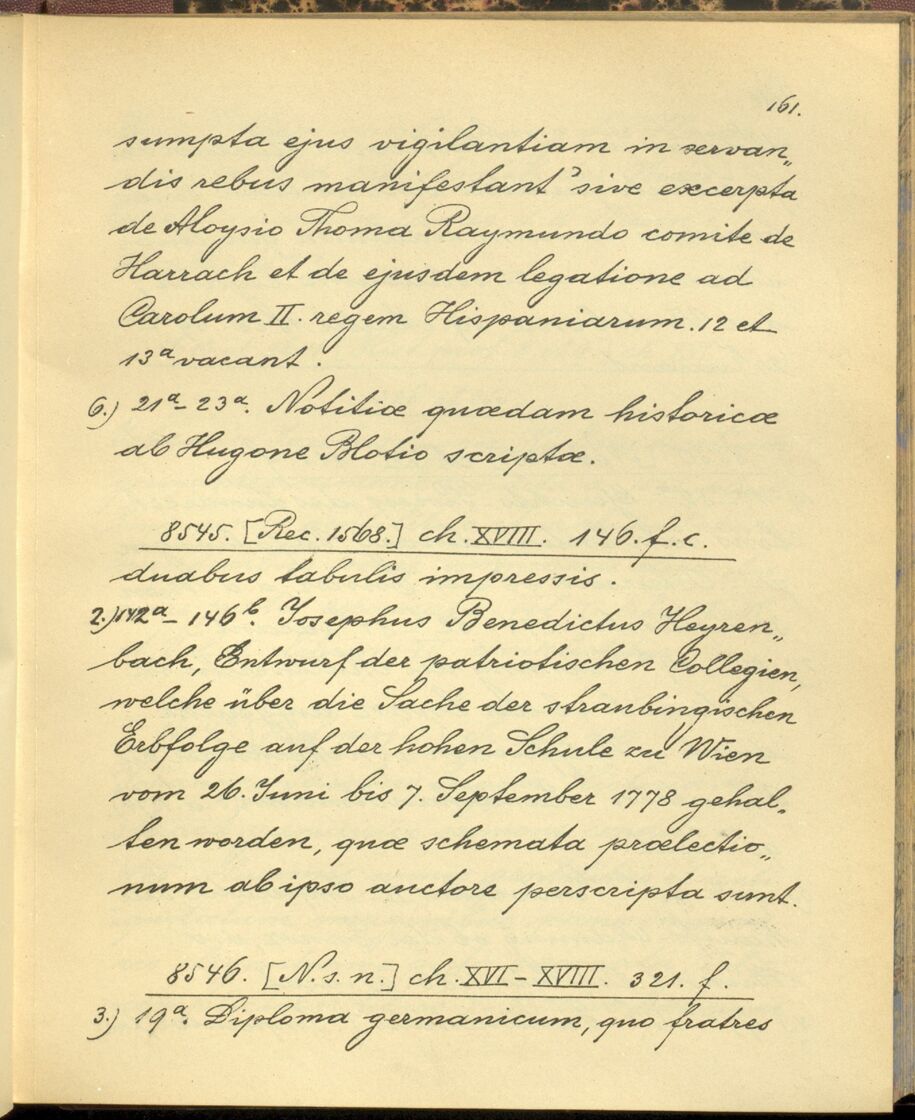 161.
sumpta ejus vigilantiam in servan„
dis rebus manifestant" sive excerpta
de Aloysio Thoma Raymundo comite de
Harrach et de ejusdem legatione ad
Carolum II. regem Hispaniarum. 12 et
13a vacant.
6.) 21a – 23a. Notitiæ quædam historicæ
ab Hugone Blotio scriptæ.
8545. [Rec. 1568.] ch. XVIII. 146. f. c.
duabus tabulis impressis.
2.) 142a – 146b. Josephus Benedictus Heyren„
bach, Entwurf der patriotischen Collegien,
welche über die Sache der straubingischen
Erbfolge auf der hohen Schule zu Wien
vom 26. Juni bis 7. September 1778 gehal„
ten worden, quæ schemata prælectio„
num ab ipso auctore perscripta sunt.
8546. [N. s. n.] ch. XVI – XVIII. 321. f.
3.) 19a. Diploma germanicum, quo fratres